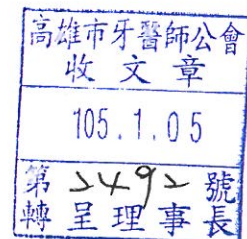 高雄市牙醫師公會
收文章
105.1.05
第2492號
轉呈理事長